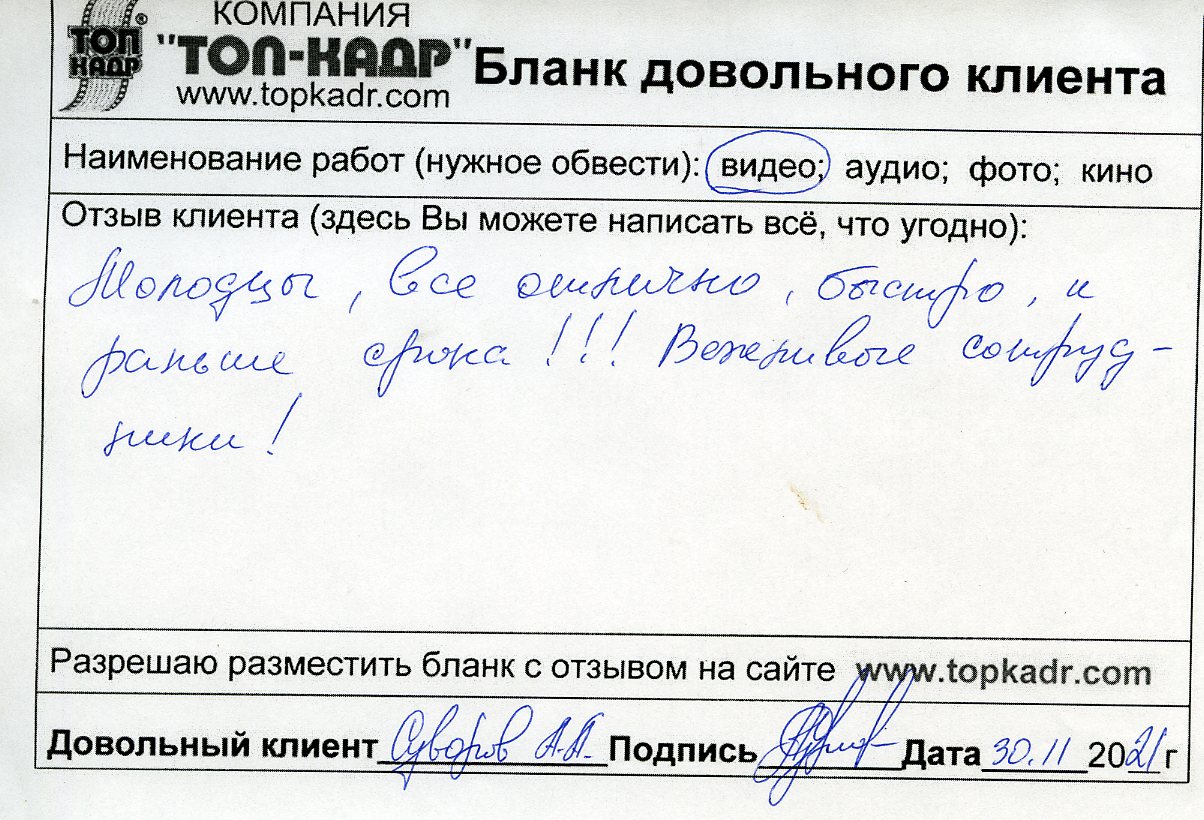 КОМПАНИЯ
ТОП КАДР ®
"ТОП-КАДР"
www.topkadr.com
Бланк довольного клиента
Наименование работ (нужное обвести): видео; аудио; фото; кино
Отзыв клиента (здесь Вы можете написать всё, что угодно):
Молодцы, все отлично, быстро, и
раньше срока!!! Вежливые сотруд-
ники!
Разрешаю разместить бланк с отзывом на сайте www.topkadr.com
Довольный клиент Суворов А.А. Подпись Дата 30.11 2021 г